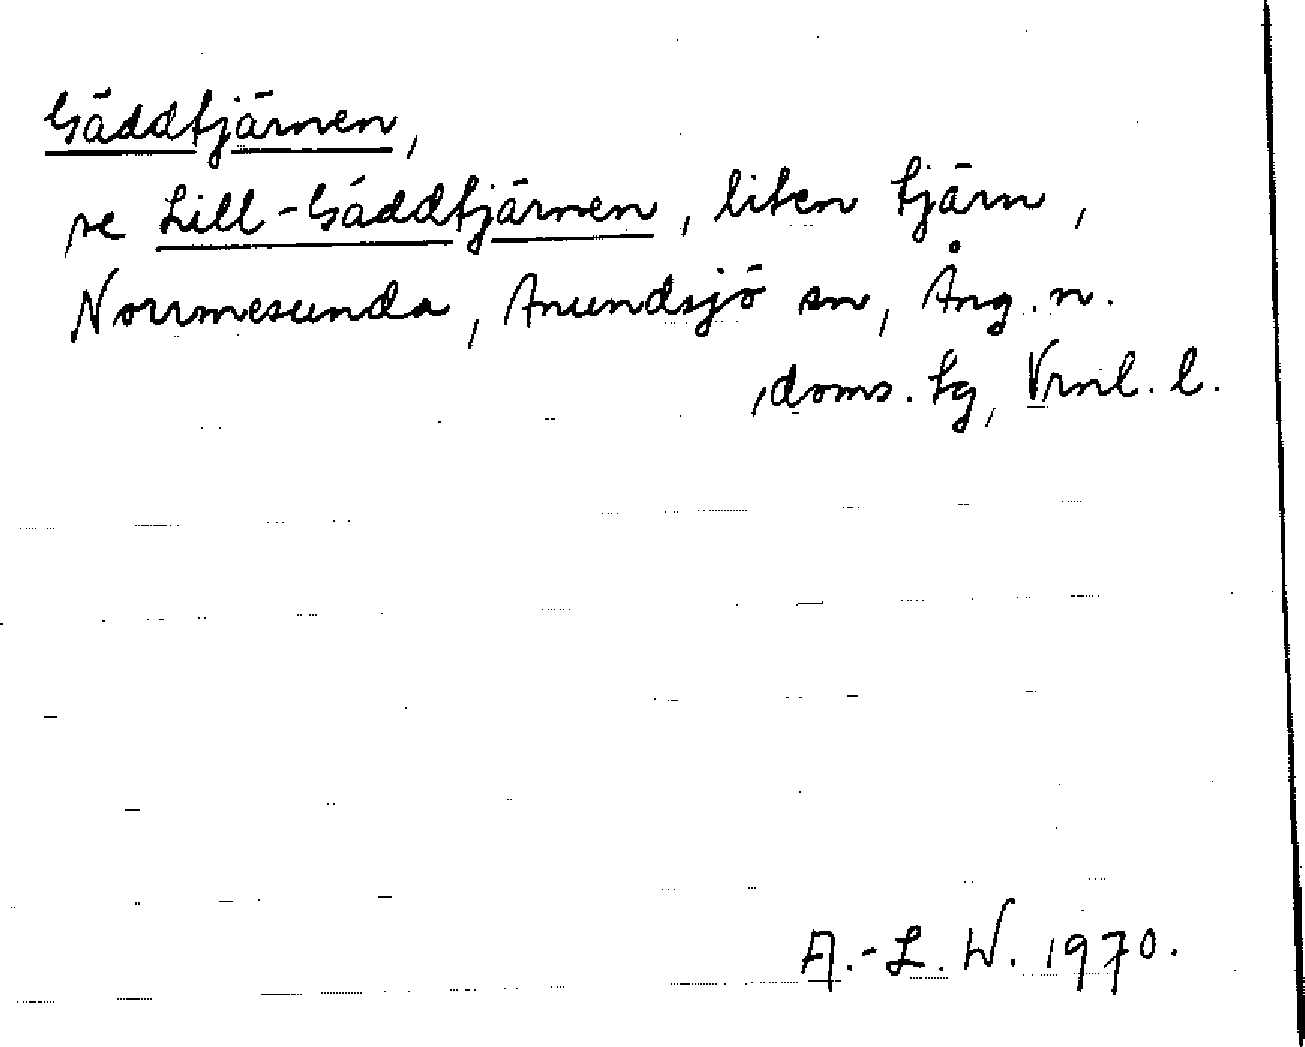 Gäddtjärnen,
se Lill-Gäddtjärnen, liten tjärn,
Norrmesunda, Anundsjö sn, Ång. n.
doms. tg, Vrnl. l.
A.-L. W. 1970.